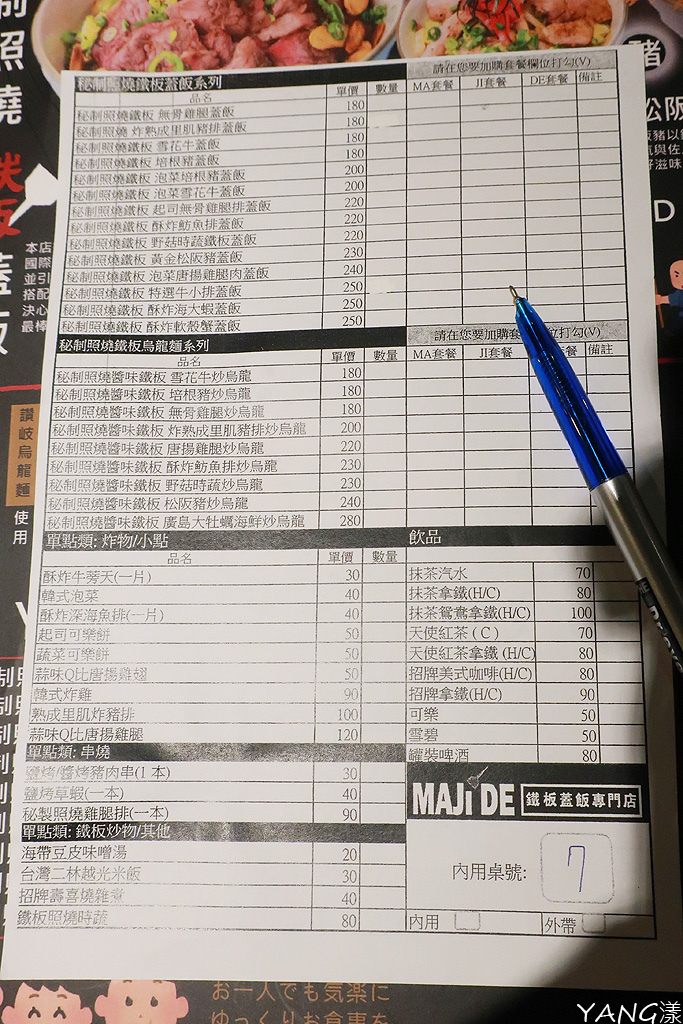 秘制照燒鐵板蓋飯系列 請在您要加購套餐欄位打勾(V)
品名 單價 數量 MA套餐 JI套餐 DE套餐 備註
秘制照燒鐵板 無骨雞腿蓋飯 180
秘制照燒 炸熟成里肌豬排蓋飯 180
秘制照燒鐵板 雪花牛蓋飯 180
秘制照燒鐵板 培根豬蓋飯 180
秘制照燒鐵板 泡菜培根豬蓋飯 200
秘制照燒鐵板 泡菜雪花牛蓋飯 200
秘制照燒鐵板 起司無骨雞腿排蓋飯 220
秘制照燒鐵板 酥炸魴魚蓋飯 220
秘制照燒鐵板 野菇時蔬鐵板蓋飯 220
秘制照燒鐵板 黃金松阪豬蓋飯 230
秘制照燒鐵板 泡菜唐揚雞腿肉蓋飯 240
秘制照燒鐵板 特選牛小排蓋飯 250
秘制照燒鐵板 酥炸海大蝦蓋飯 250
秘制照燒鐵板 酥炸軟殼蟹蓋飯 250
秘制照燒鐵板烏龍麵系列 請在您要加購套 位打勾(V)
品名 單價 數量 MA套餐 JI套餐 套餐 備註
秘制照燒醬味鐵板 雪花牛炒烏龍 180
秘制照燒醬味鐵板 培根豬炒烏龍 180
秘制照燒醬味鐵板 無骨雞腿炒烏龍 180
秘制照燒醬味鐵板 炸熟成里肌豬排炒烏龍 200
秘制照燒醬味鐵板 唐揚雞腿炒烏龍 220
秘制照燒醬味鐵板 酥炸魴魚排炒烏龍 230
秘制照燒醬味鐵板 野菇時蔬炒烏龍 230
秘制照燒醬味鐵板 松阪豬炒烏龍 240
秘制照燒醬味鐵板 廣島大牡蠣海鮮炒烏龍 280
單點類: 炸物/小點
品名 單價 數量
酥炸牛蒡天(一片) 30
韓式泡菜 40
酥炸深海魚排(一片) 40
起司可樂餅 50
蔬菜可樂餅 50
蒜味Q比唐揚雞翅 50
韓式炸雞 90
熟成里肌炸豬排 100
蒜味Q比唐揚雞腿 120
單點類: 串燒
鹽烤/醬烤豬肉串(1 本) 30
鹽烤草蝦(一本) 40
秘製照燒雞腿排(一本) 90
單點類: 鐵板炒物/其他
海帶豆皮味噌湯 20
台灣二林越光米飯 30
招牌壽喜燒雜煮 40
鐵板照燒時蔬 80
飲品
抹茶汽水 70
抹茶拿鐵(H/C) 80
抹茶鴛鴦拿鐵(H/C) 100
天使紅茶 ( C ) 70
天使紅茶拿鐵 (H/C) 80
招牌美式咖啡(H/C) 80
招牌拿鐵(H/C) 90
可樂 50
雪碧 50
罐裝啤酒 80
MAJi DE 鐵板蓋飯專門店
內用桌號: 7
內用 外帶
制照燒
炭
飯
蓋
飯
本店
國際
並引
搭配
決心
最棒
讚岐烏龍麵
使用
豬
松阪
D
お一人でも気楽に
ゆっくりお食事を
YANG漾